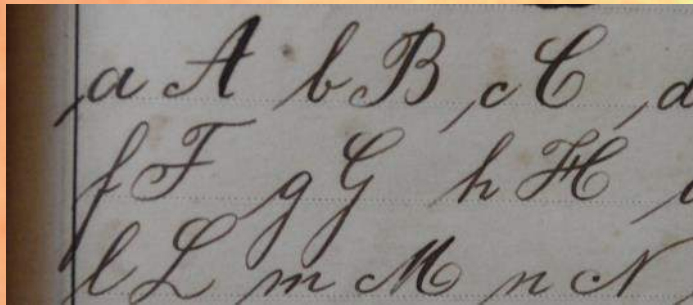 a A b B c C d
f F g G h H i
l L m M n N